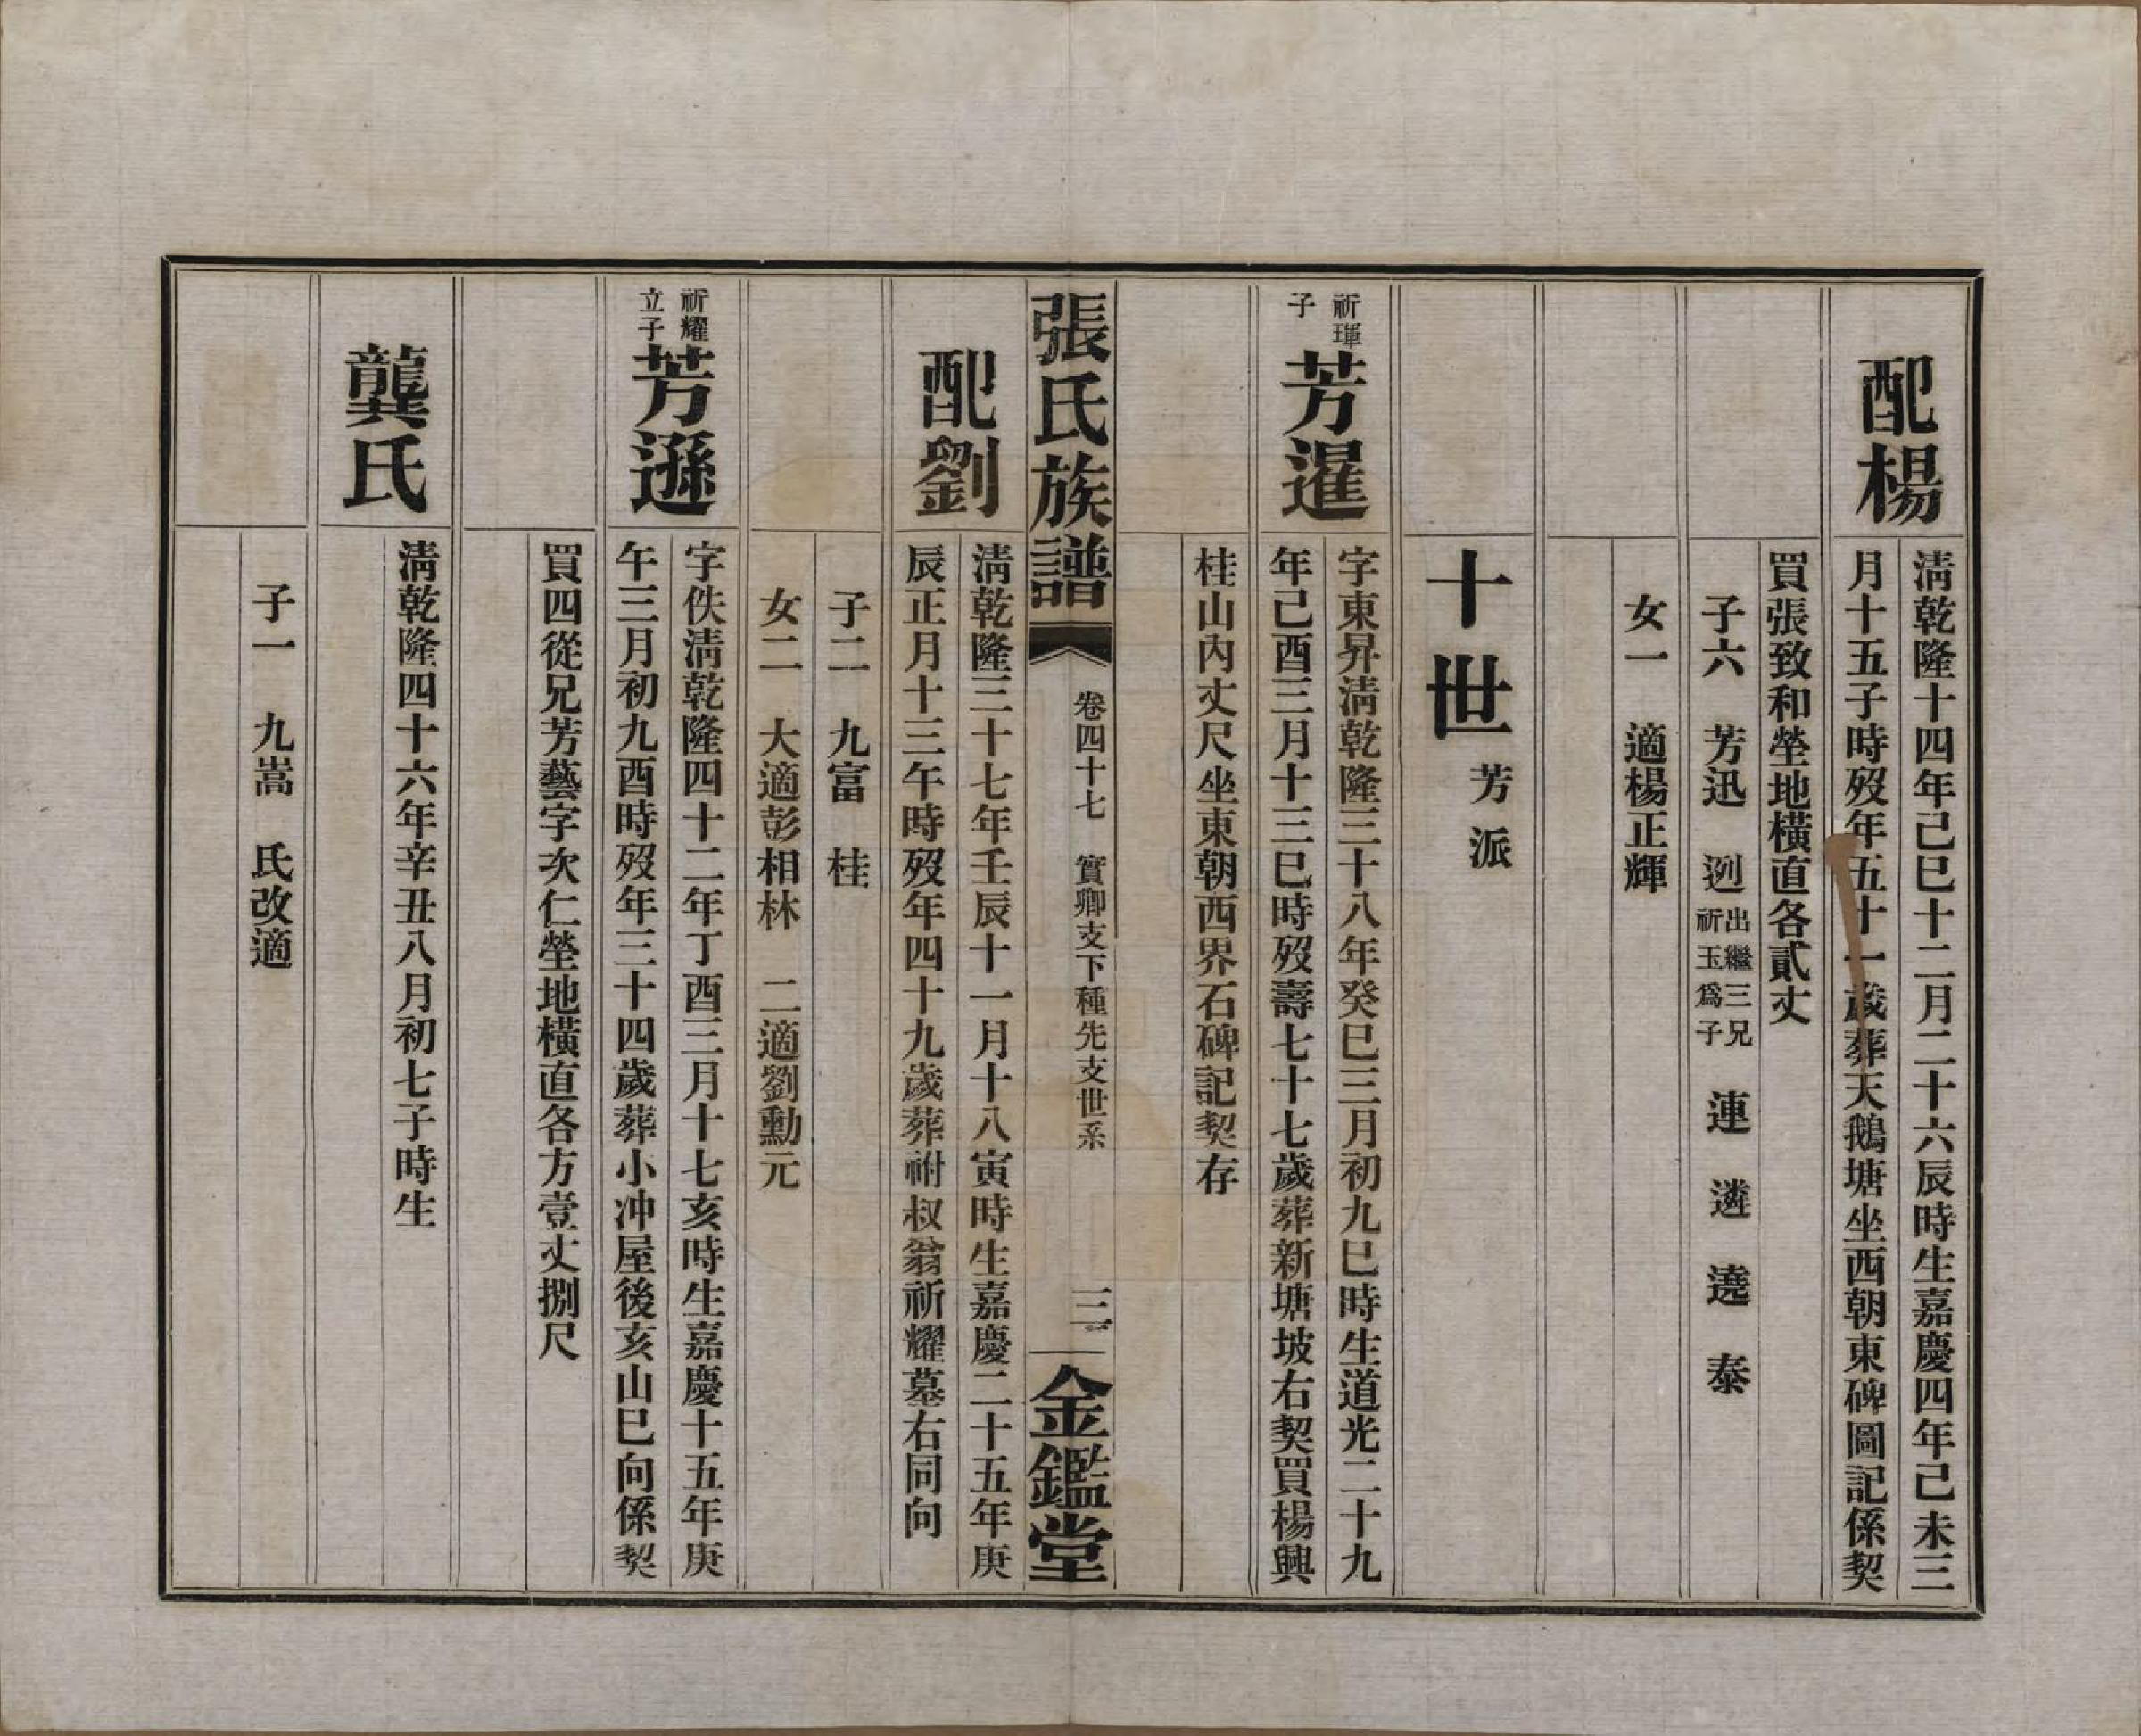 配楊
清乾隆十四年己巳十二月二十六辰時生嘉慶四年己未三
月十五子時歿年五十一歲葬天鵝塘坐西朝東碑圖記係契
買張致和塋地橫直各貳丈
子六　芳迅　迾出繼三兄祈玉爲子　連　遴　遶　泰
女一　適楊正輝
十世芳派
祈琿子
芳暹
字東昇清乾隆三十八年癸巳三月初九巳時生道光二十九
年己酉三月十三巳時歿壽七十七歲葬新塘坡右契買楊興
桂山內丈尺坐東朝西界石碑記契存
張氏族譜
卷四十七　實卿支下種先支世系
三
金鑑堂
配劉
清乾隆三十七年壬辰十一月十八寅時生嘉慶二十五年庚
辰正月十三午時歿年四十九歲葬祔叔翁祈耀墓右同向
子二　九富　桂
女二　大適彭相林　二適劉勳元
祈耀立子
芳遜
字佚清乾隆四十二年丁酉三月十七亥時生嘉慶十五年庚
午三月初九酉時歿年三十四歲葬小冲屋後亥山巳向係契
買四從兄芳藝字次仁塋地橫直各方壹丈捌尺
龔氏
清乾隆四十六年辛丑八月初七子時生
子一　九嵩　氏改適